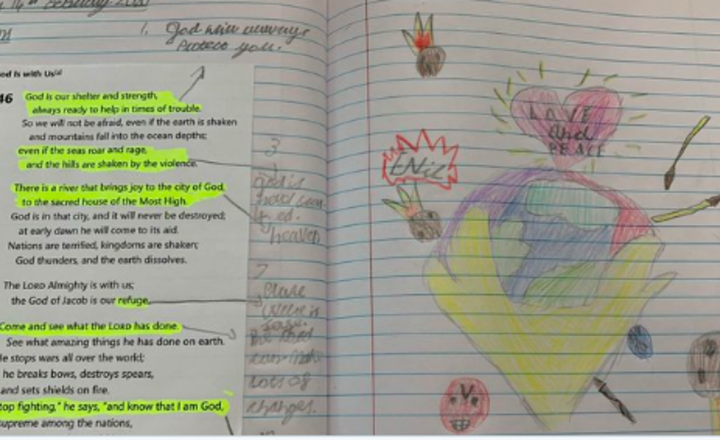 14th February
1. God will always
Protect you.
God is with Us
46 God is our shelter and strength,
always ready to help in times of trouble.
So we will not be afraid, even if the earth is shaken
and mountains fall into the ocean depths;
even if the seas roar and rage,
and the hills are shaken by the violence.
There is a river that brings joy to the city of God,
to the sacred house of the Most High.
God is in that city, and it will never be destroyed;
at early dawn he will come to its aid.
Nations are terrified, kingdoms are shaken;
God thunders, and the earth dissolves.
The LORD Almighty is with us;
the God of Jacob is our refuge.
Come and see what the LORD has done.
See what amazing things he has done on earth.
He stops wars all over the world;
he breaks bows, destroys spears,
and sets shields on fire.
top fighting," he says, "and know that I am God,
supreme among the nations,
3
god is
heaven
lots of
changes.
LOVE
and
PEACE